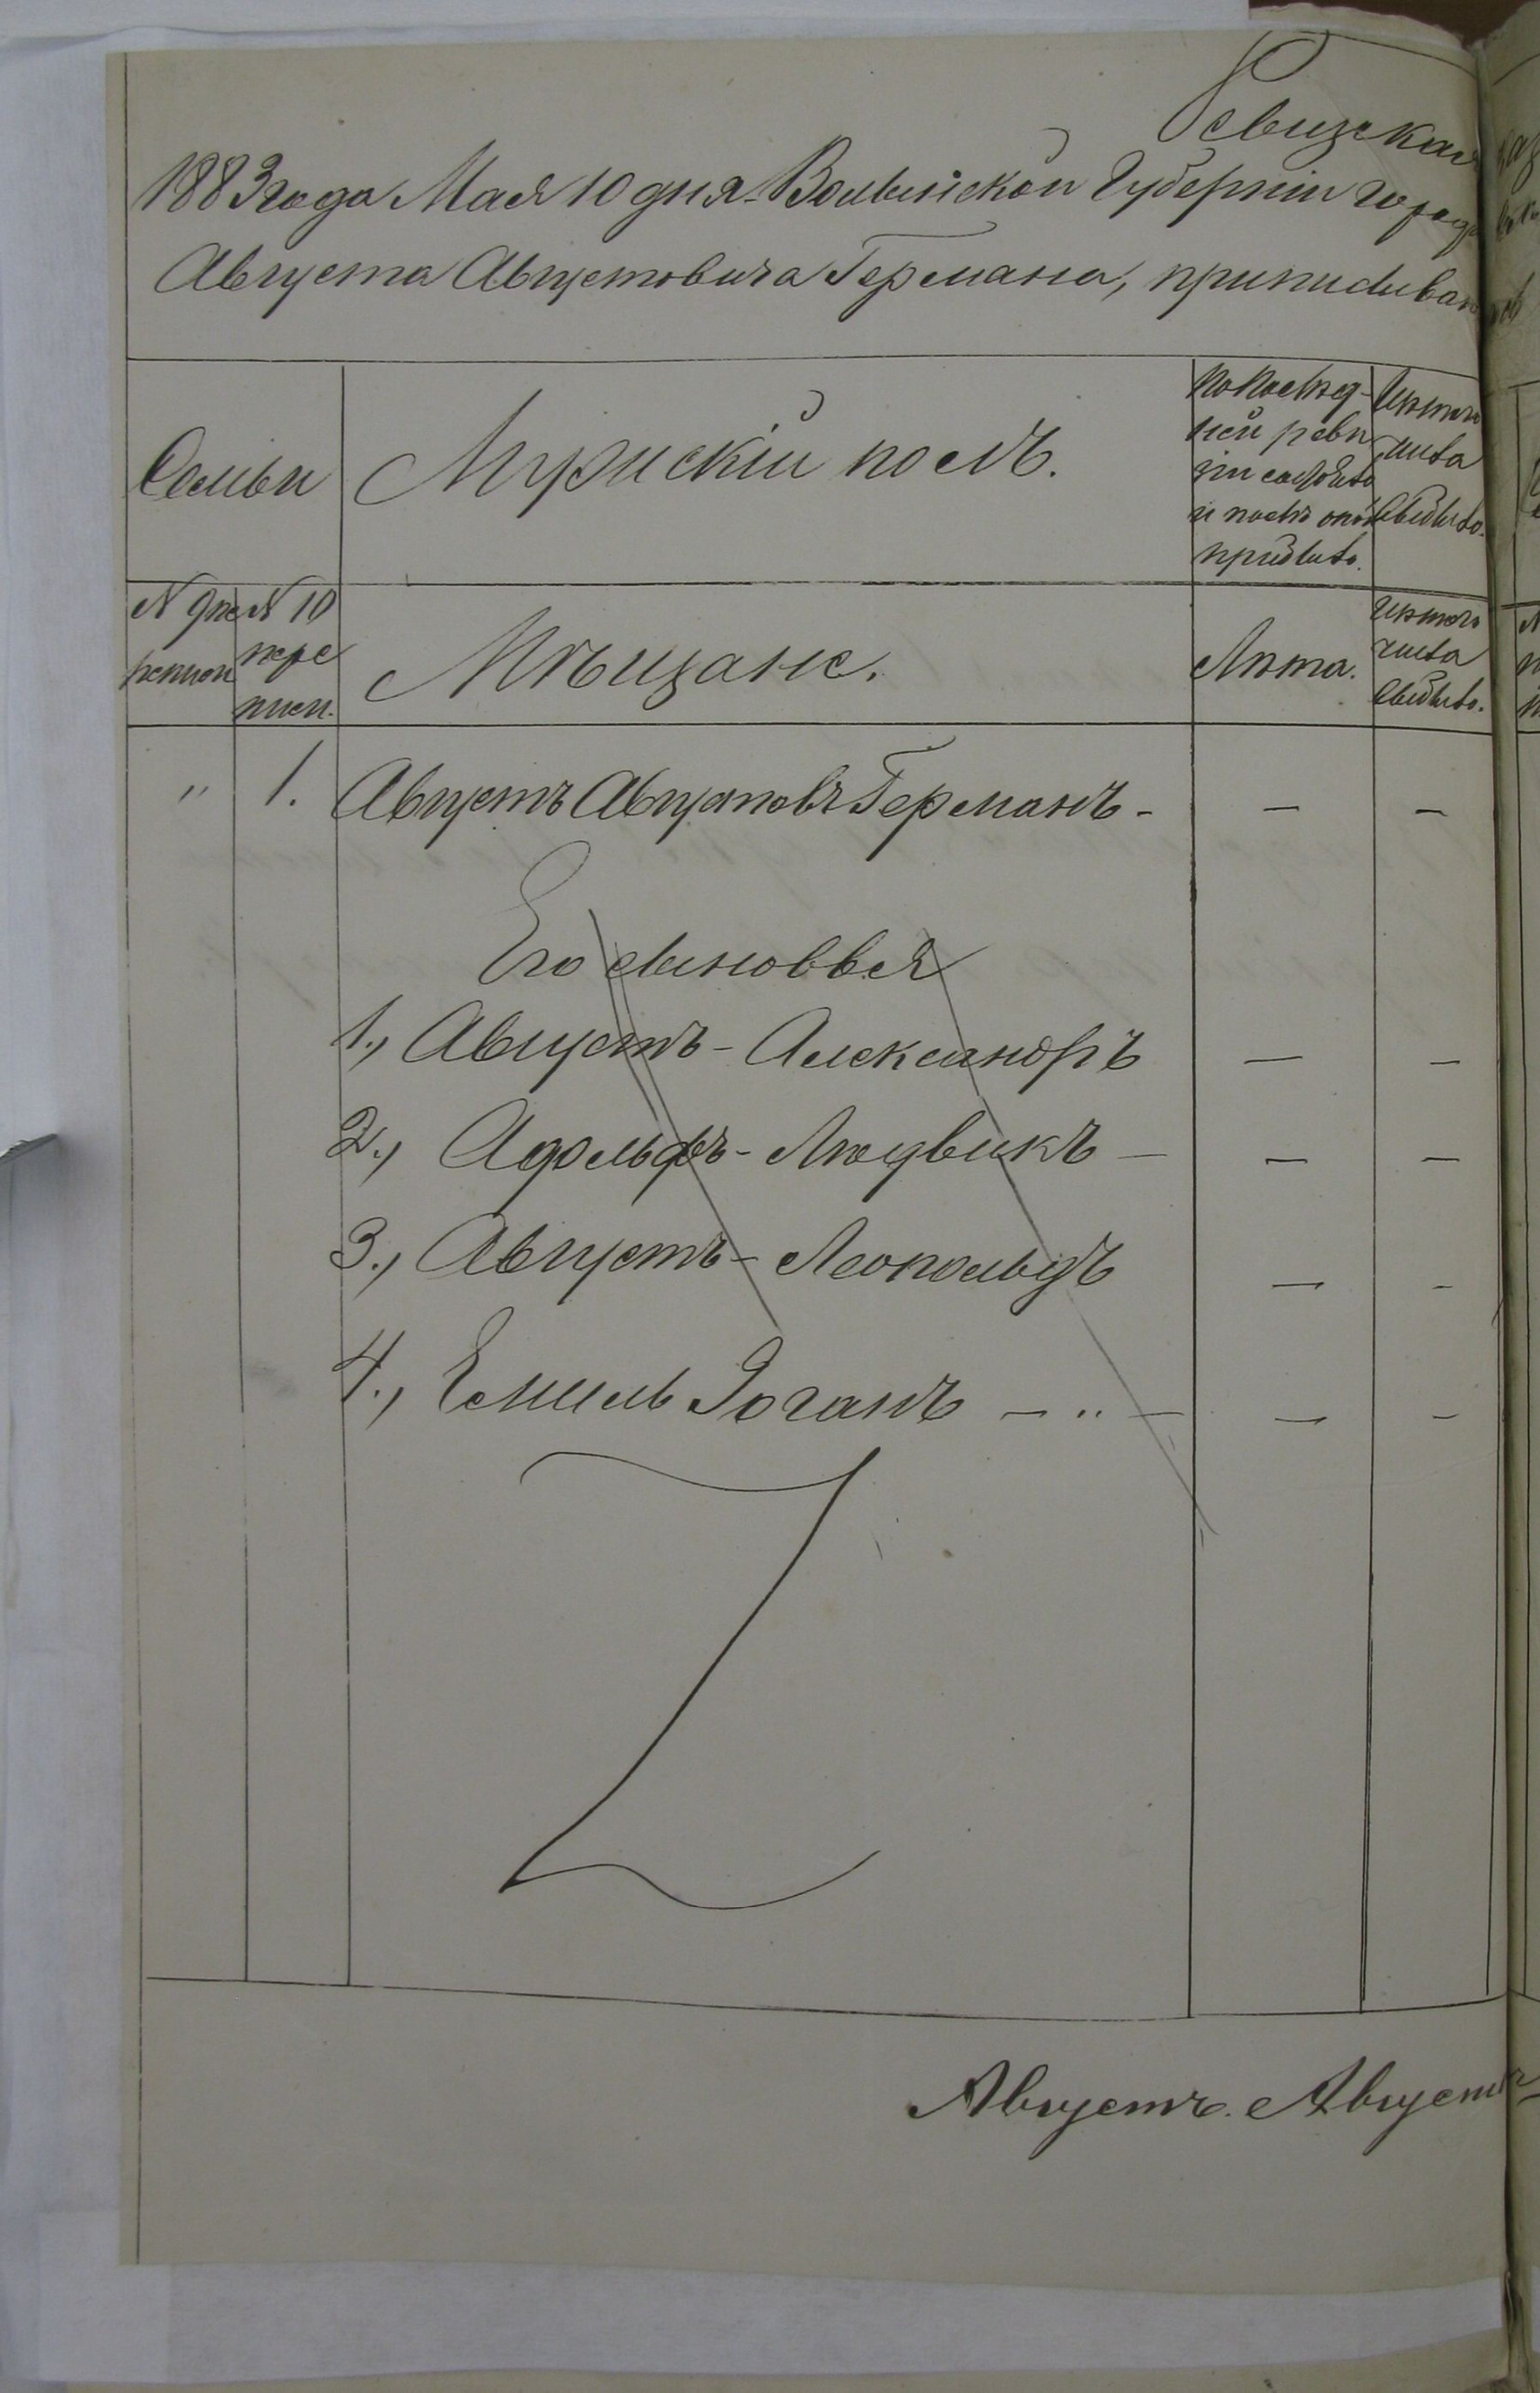 Ревизская
1883 года Мая 10 дня Волынской Губернии города
Августа Августовича Германа, приписыван
Семьи
Мужскій полъ.
По послѣд-
ней реви
зіи состояло
и послѣ оной
прибыло.
Изъ того
числа
выбыло.
N 9 пе
реписи
N 10
пере
писи.
Мѣщане.
Лѣта.
Изъ того
числа
выбыло.
" 1. Августъ Августовъ Германъ - — —
Его сыновья
1., Августъ - Александръ — —
2., Адольфъ - Людвикъ — — —
3., Августъ - Леопольдъ — -
4., Емиль Іоганъ — " — — -
Августъ. Август